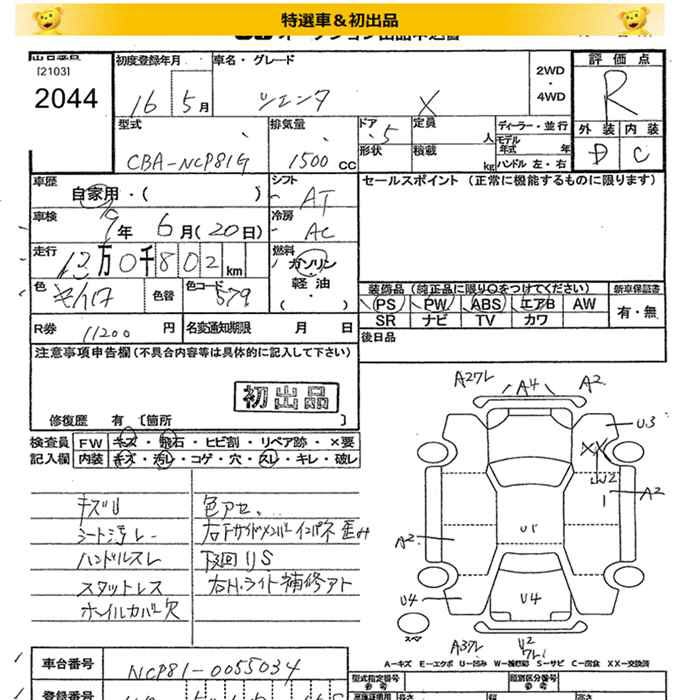 特選車＆初出品
[2103]
2044
初度登録年月
16 5月
車名・グレード
シエンタ X
2WD
・
4WD
評価点
R
型式
CBA-NCP81G
排気量
1500 CC
ドア
5
定員
人
形状
積載
kg
ディーラー・並行
モデル
年式 年
ハンドル 左・右
外装 内装
D C
車歴
自家用・( )
シフト
AT
セールスポイント (正常に機能するものに限ります)
車検
9年 6月(20日)
冷房
AC
走行
13万0千802km
燃料
ガソリン
軽油
( ・ )
色
色替
色コード
579
装備品 (純正品に限り○をつけてください)
新車保証書
PS PW ABS エアB AW
SR ナビ TV カワ
有・無
R券 11200 円
名変通知期限 月 日
後日品
注意事項申告欄 (不具合内容等は具体的に記入して下さい)
初出品
修復歴 有 〔箇所 〕
検査員
記入欄
FW キズ・飛石・ヒビ割・リペア跡・×要
内装 キズ・汚レ・コゲ・穴・スレ・キレ・破レ
キズU
シート汚レ
ハンドルスレ
スタットレス
ホイルカバー欠
色アセ、
右Fサイドメンバーインパネ歪み
下回りS
右H.ライト補修アト
A27L
A4
A2
U3
XX
W2
A2
A2
U1
U4
U4
スペア
A37L
U2
A-キズ E-エクボ U-凹み W-補修跡 S-サビ C-腐食 XX-交換済
車台番号
NCP81-0055034
型式指定番号
参考
類別区分番号
参考
登録番号